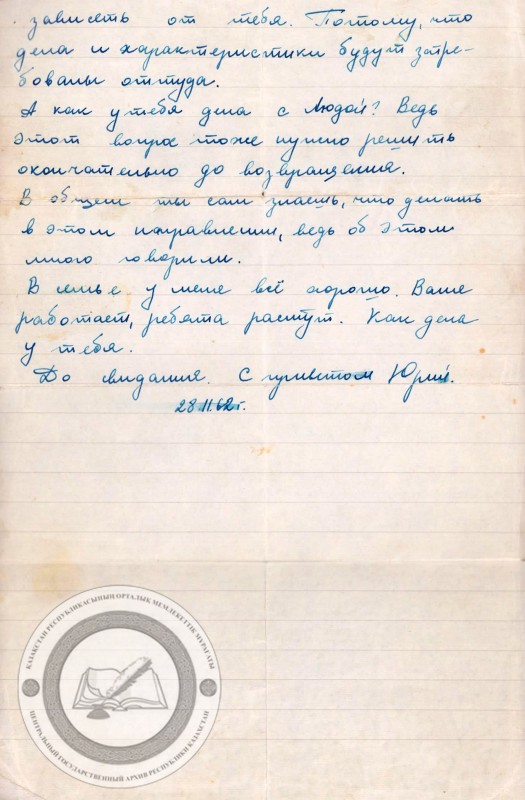 зависеть от тебя. Потому, что
дела и характеристики будут затре-
бованы оттуда.
А как у тебя дела с Людой? Ведь
этот вопрос тоже нужно решить
окончательно до возвращения.
В общем ты сам знаешь, что делать
в этом направлении, ведь об этом
много говорили.
В семье у меня всё хорошо. Валя
работает, ребята растут. Как дела
у тебя.
До свидания. С приветом Юрий.
28.11.62г.
ҚАЗАҚСТАН РЕСПУБЛИКАСЫНЫҢ ОРТАЛЫҚ МЕМЛЕКЕТТІК МҰРАҒАТЫ
ЦЕНТРАЛЬНЫЙ ГОСУДАРСТВЕННЫЙ АРХИВ РЕСПУБЛИКИ КАЗАХСТАН